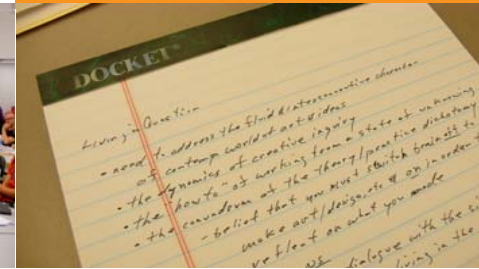 DOCKET
Living in Question
• need to address the fluid & interconnective character
of contemp world of art & ideas
• the dynamics of creative inquiry
• the "how to" of working from a state of unknowing
• the conundrum of the theory/practice dichotomy
- belief that you must switch brain off to
make art/designs etc & on in order to
reflect on what you made
dialogue with the
living in the